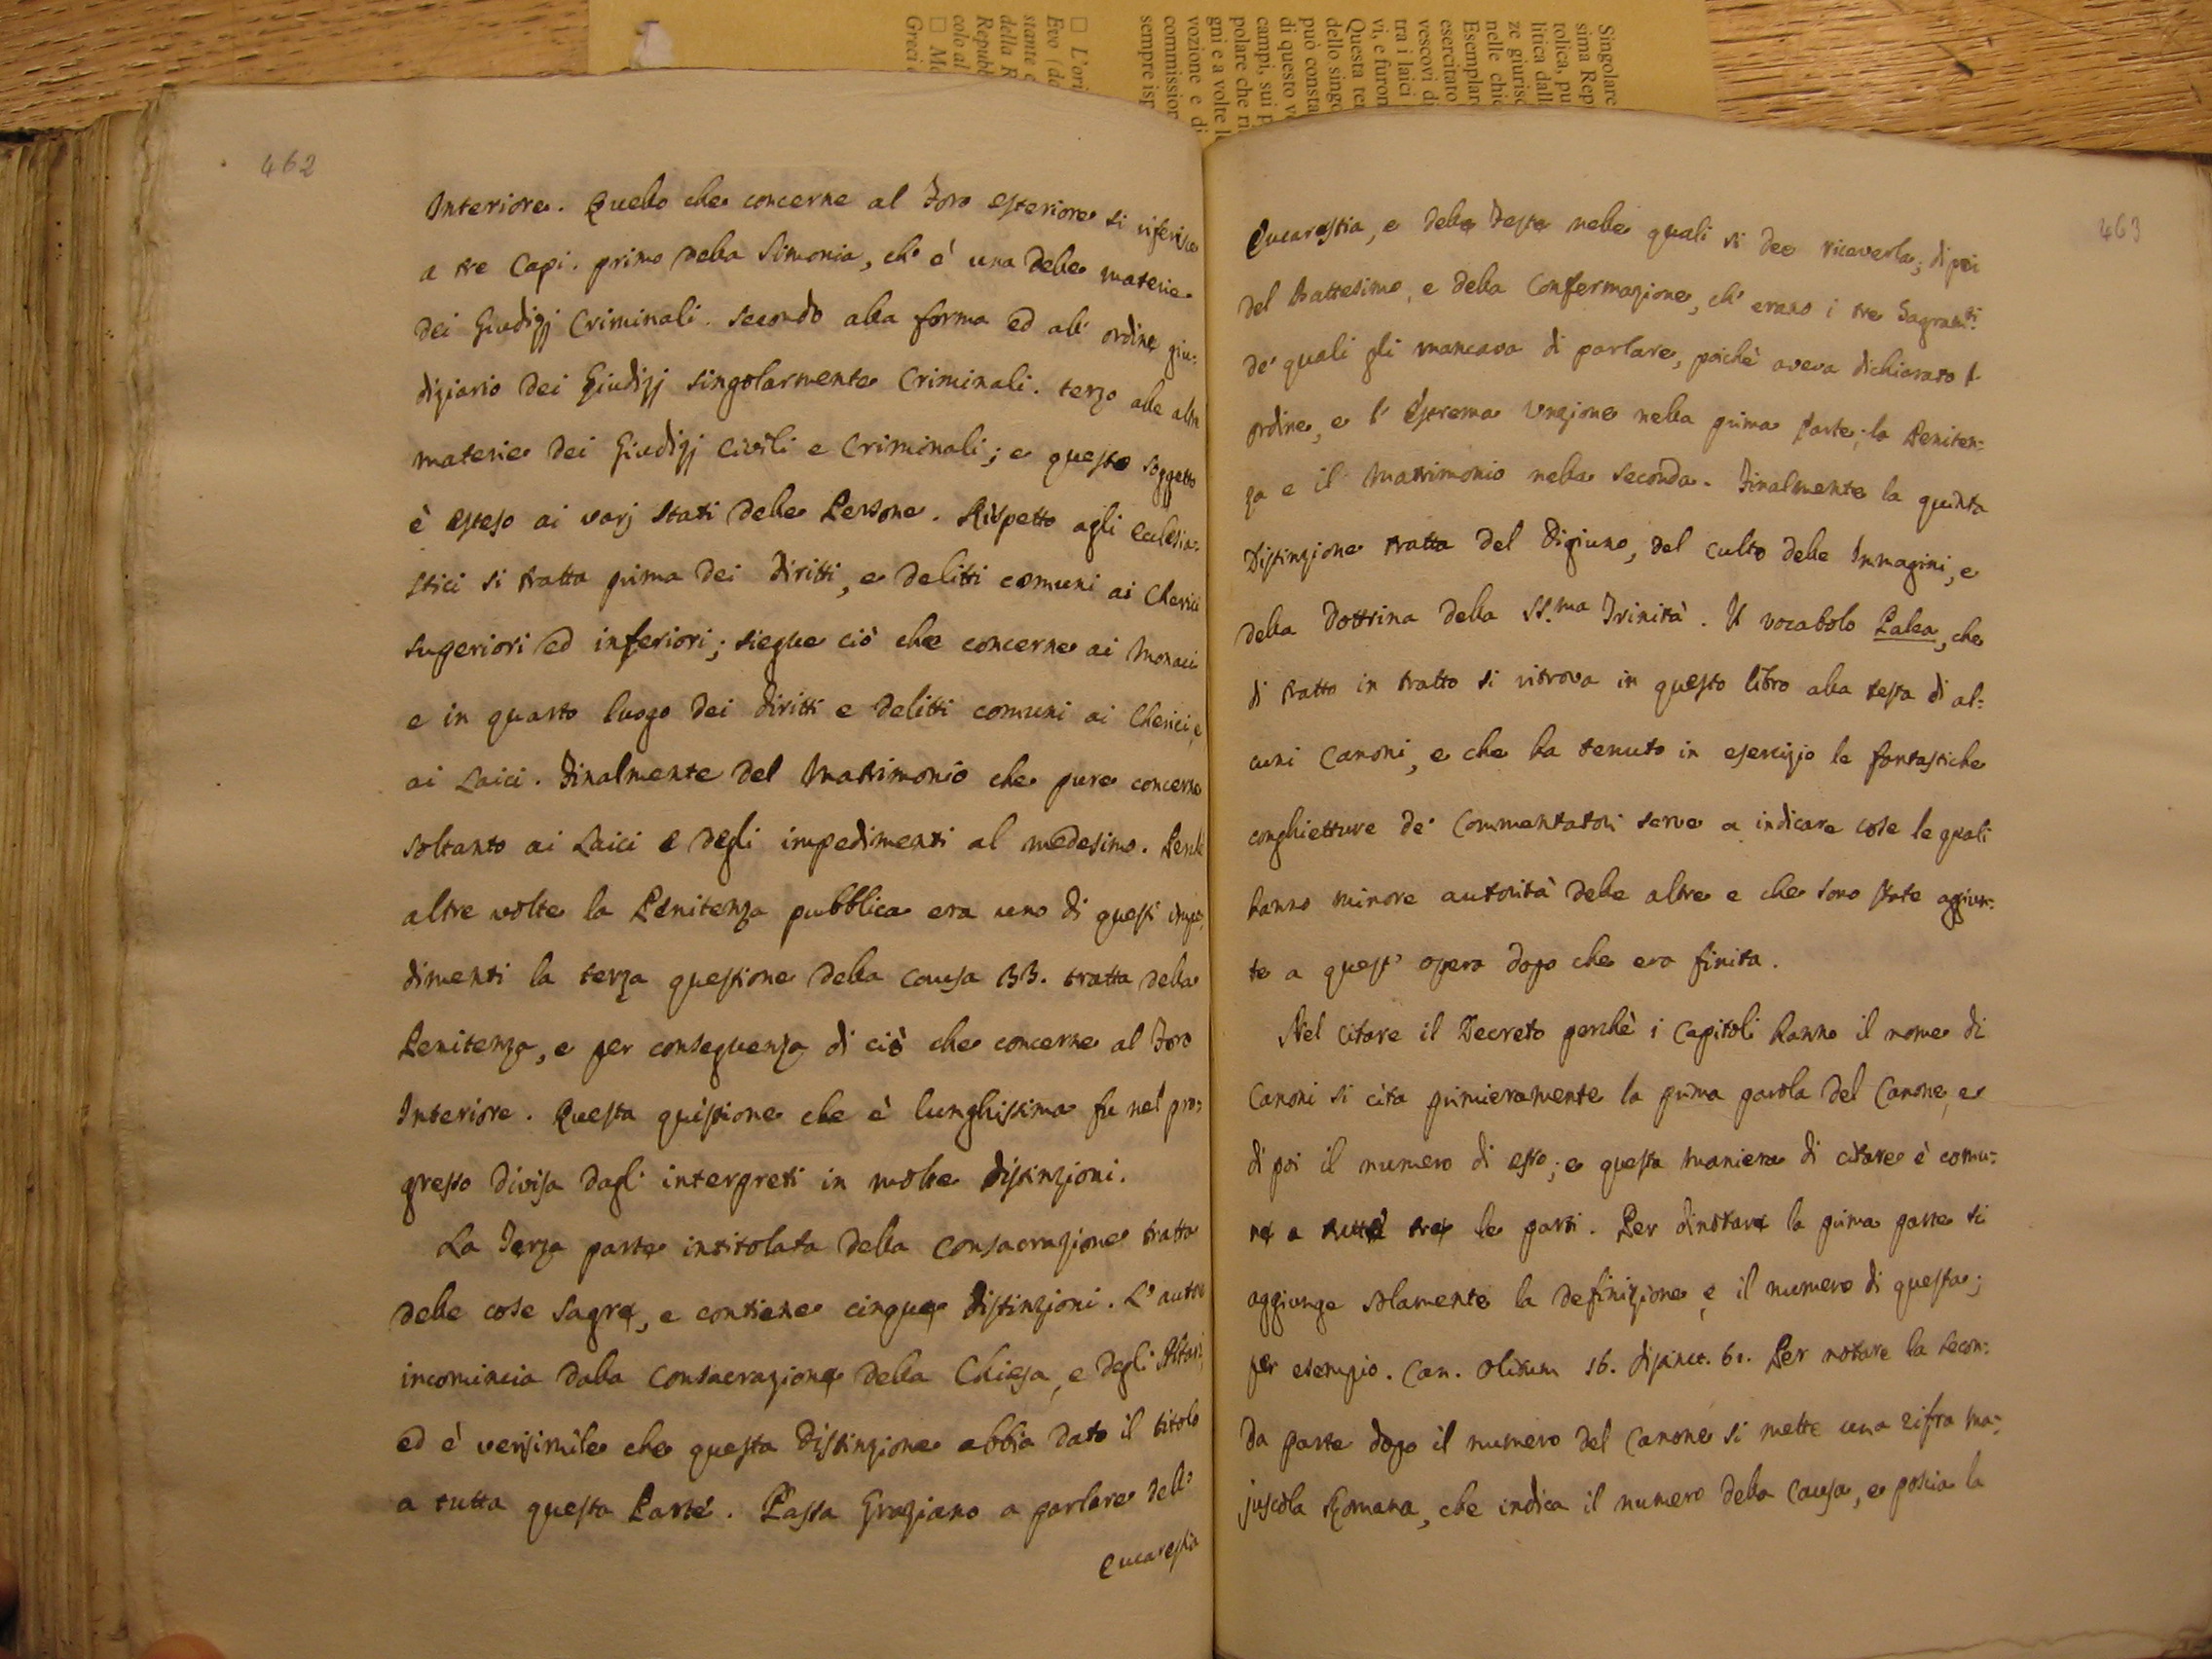 462
Interiore. Quello che concerne al Foro esteriore si riferisce
a tre Capi. primo della Simonia, ch'è una delle materie
dei Giudizj Criminali. secondo alla forma ed all'ordine giu=
diziario dei Giudizj singolarmente Criminali. terzo alle altre
materie dei Giudizj Civili e Criminali; e questo soggetto
è esteso ai varj stati delle Persone. Rispetto agli Ecclesia=
stici si tratta prima dei diritti, e delitti comuni ai Cherici
superiori ed inferiori; siegue ciò che concerne ai Monaci
e in quarto luogo dei diritti e delitti comuni ai Cherici, e
ai Laici. Finalmente del Matrimonio che pure concerne
soltanto ai Laici e degli impedimenti al medesimo. Perchè
altre volte la Penitenza pubblica era uno di questi impe=
dimenti la terza questione della Causa 33. tratta della
Penitenza, e per conseguenza di ciò che concerne al Foro
Interiore. Questa quistione che è lunghissima fu nel pro=
gresso divisa dagl'interpreti in molte distinzioni.
La Terza parte intitolata della Consacrazione tratta
delle cose sagre, e contiene cinque distinzioni. L'autore
incomincia dalla Consacrazione della Chiesa, e degli Altari,
ed è verisimile che questa Distinzione abbia dato il titolo
a tutta questa Parte. Passa Graziano a parlare dell'
Eucarestia
463
Eucarestia, e delle Feste nelle quali si dee riceverla; di poi
del Battesimo, e della Confermazione, ch'erano i tre Sagramti.
de' quali gli mancava di parlare, poichè aveva dichiarato l'
ordine, e l'Estrema Unzione nella prima Parte; la Peniten=
za e il Matrimonio nella seconda. Finalmente la quinta
Distinzione tratta del Digiuno, del culto delle Immagini, e
della Dottrina della SS.ma Trinità. Il vocabolo Palea, che
di tratto in tratto si ritrova in questo libro alla testa di al=
cuni Canoni, e che ha tenuto in esercizio le fantastiche
conghietture de' Commentatori serve a indicare cose le quali
hanno minore autorità delle altre e che sono state aggiun=
te a quest'opera dopo che era finita.
Nel citare il Decreto perchè i Capitoli hanno il nome di
Canoni si cita primieramente la prima parola del Canone, e
di poi il numero di esso; e questa maniera di citare è comu=
ne a tutte tre le parti. Per dinotare la prima parte si
aggiunge solamente la definizione e il numero di questa;
per esempio. Can. olitum 16. distinct. 61. Per notare la secon=
da parte dopo il numero del Canone si mette una zifra ma=
juscola Romana, che indica il numero della Causa, e poscia la